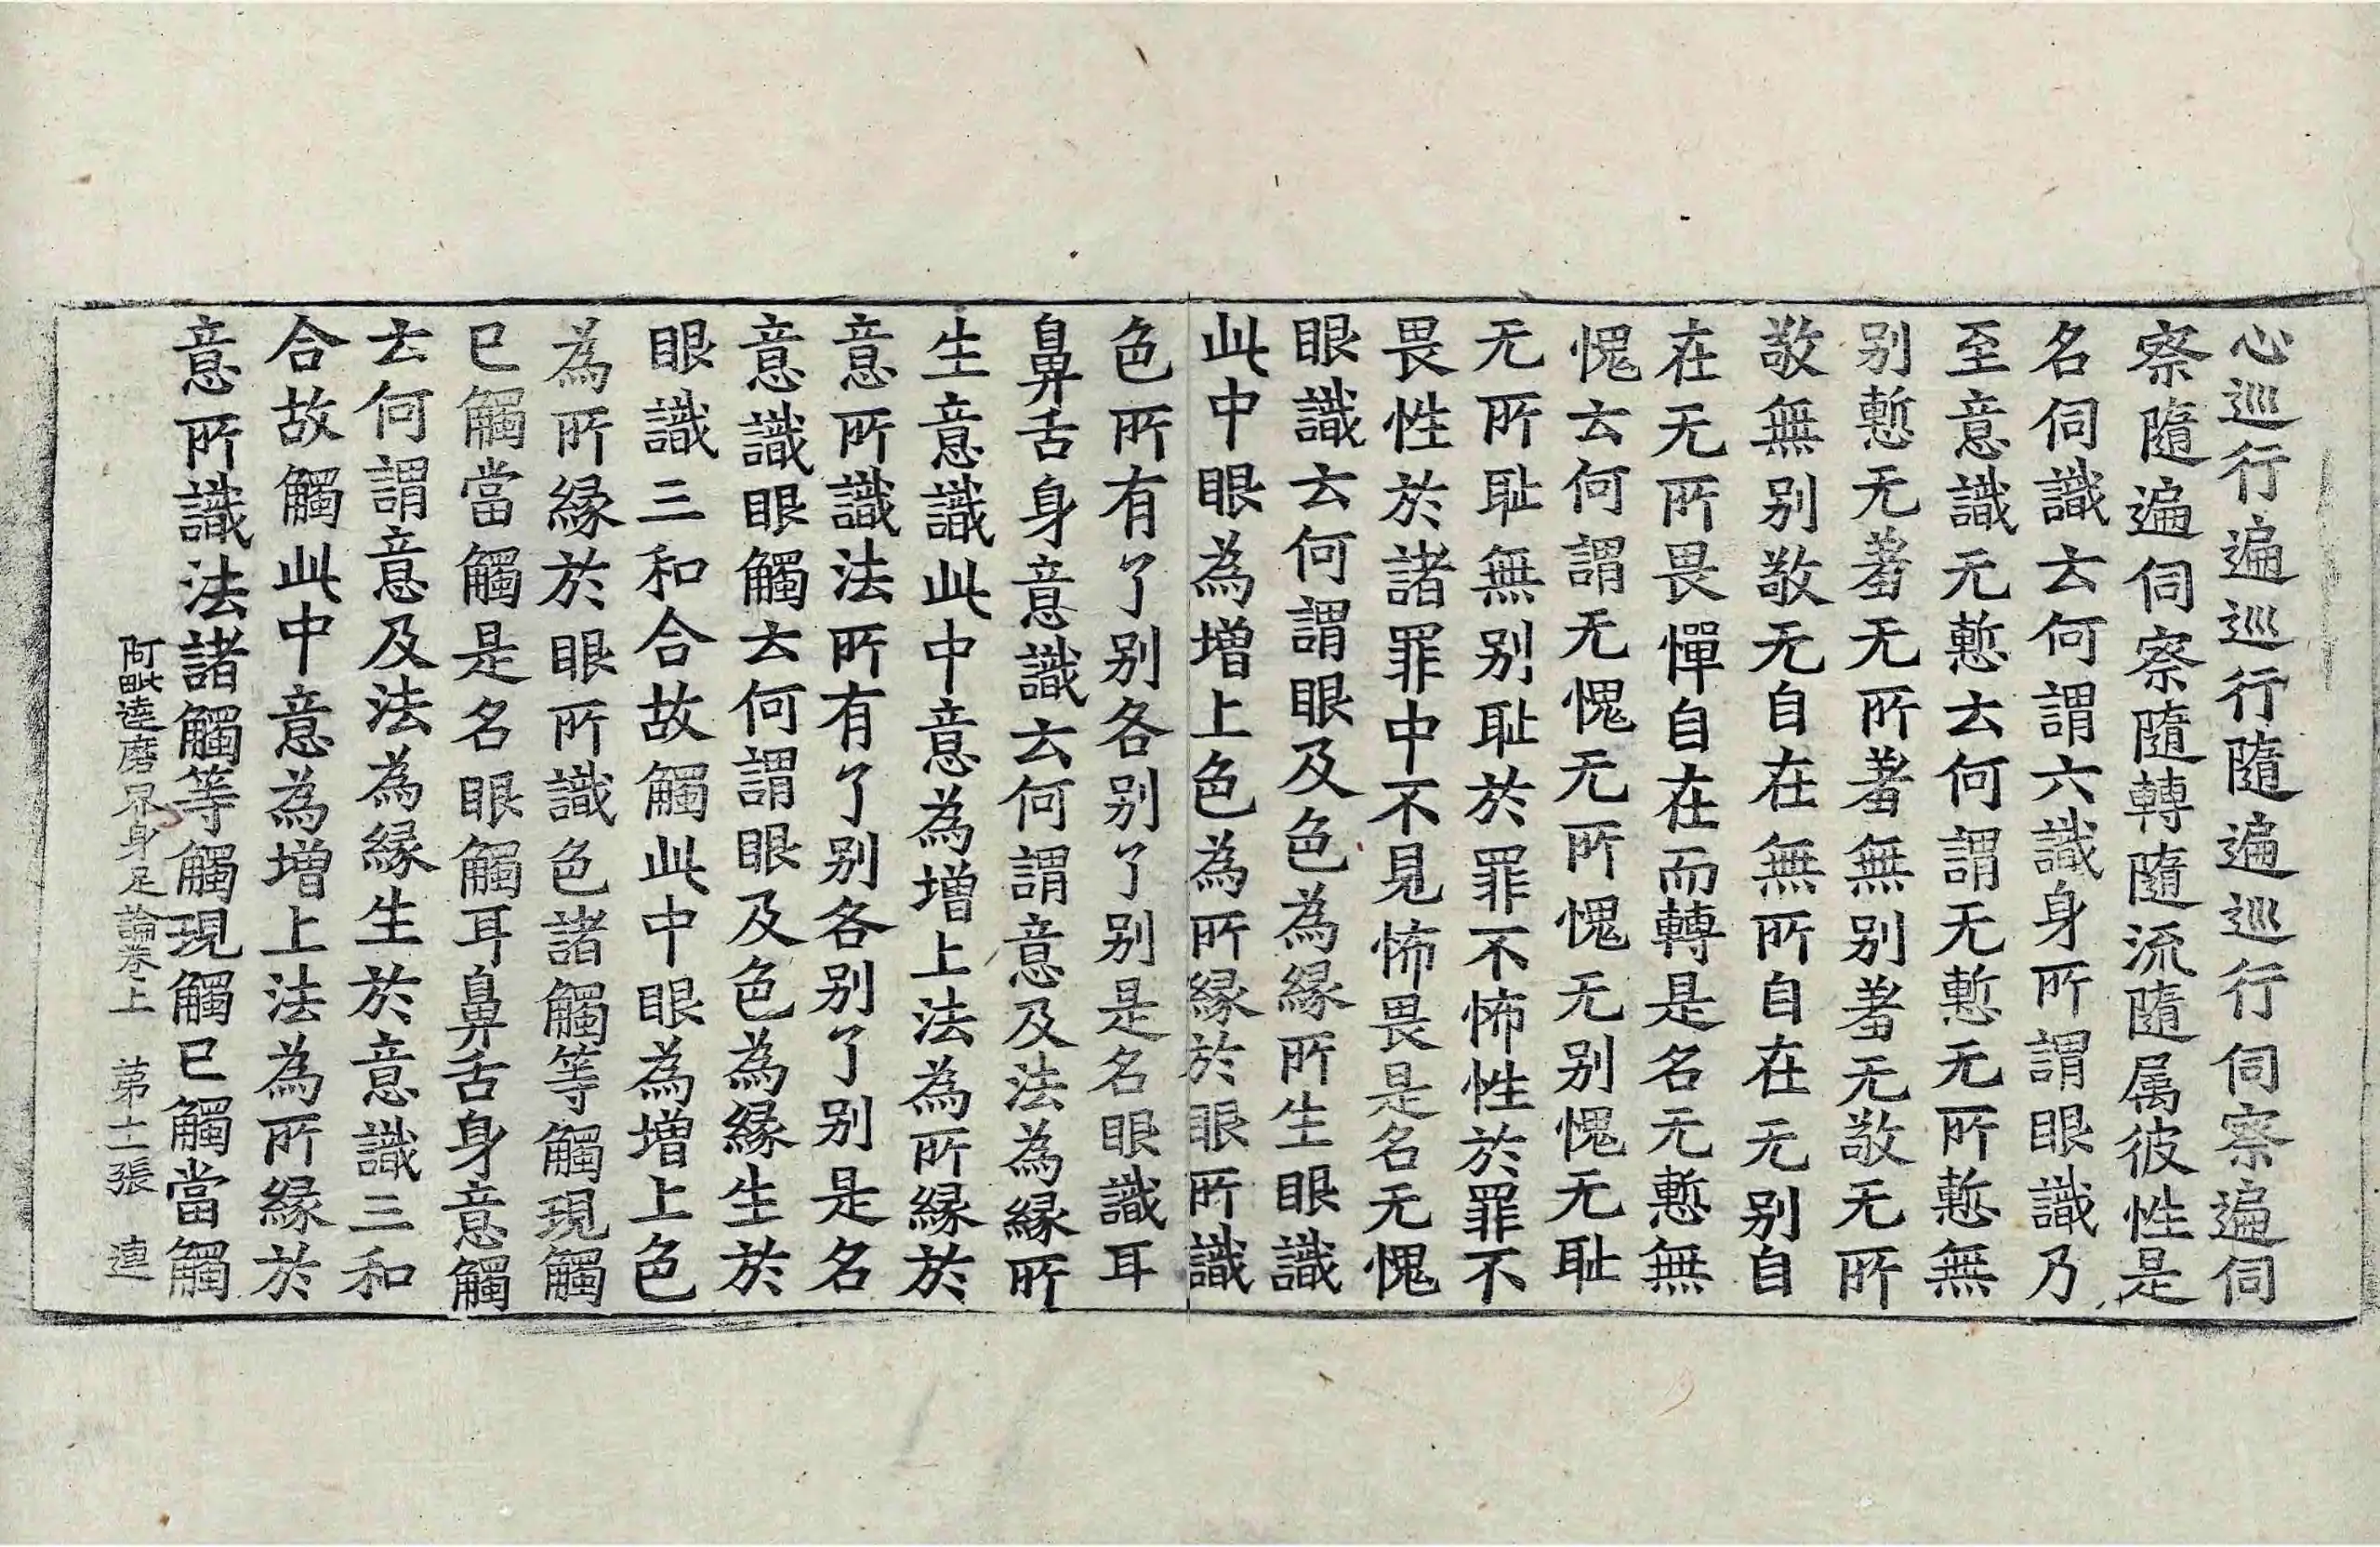 心巡行遍巡行隨遍巡行伺察遍伺
察隨遍伺察隨轉隨流隨属彼性是
名伺識去何謂六識身所謂眼識乃
至意識无慙去何謂无慙无所慙無
别慙无羞无所羞無别羞无敬无所
敬無别敬无自在無所自在无别自
在无所畏憚自在而轉是名无慙無
愧去何謂无愧无所愧无别愧无耻
无所耻無别耻於罪不怖性於罪不
畏性於諸罪中不見怖畏是名无愧
眼識去何謂眼及色為縁所生眼識
此中眼為增上色為所縁於眼所識
色所有了别各别了别是名眼識耳
鼻舌身意識去何謂意及法為縁所
生意識此中意為增上法為所縁於
意所識法所有了别各别了别是名
意識眼觸去何謂眼及色為縁生於
眼識三和合故觸此中眼為增上色
為所縁於眼所識色諸觸等觸現觸
已觸當觸是名眼觸耳鼻舌身意觸
去何謂意及法為縁生於意識三和
合故觸此中意為增上法為所縁於
意所識法諸觸等觸現觸已觸當觸
阿毗達磨界身足論卷上 苐十二張 連